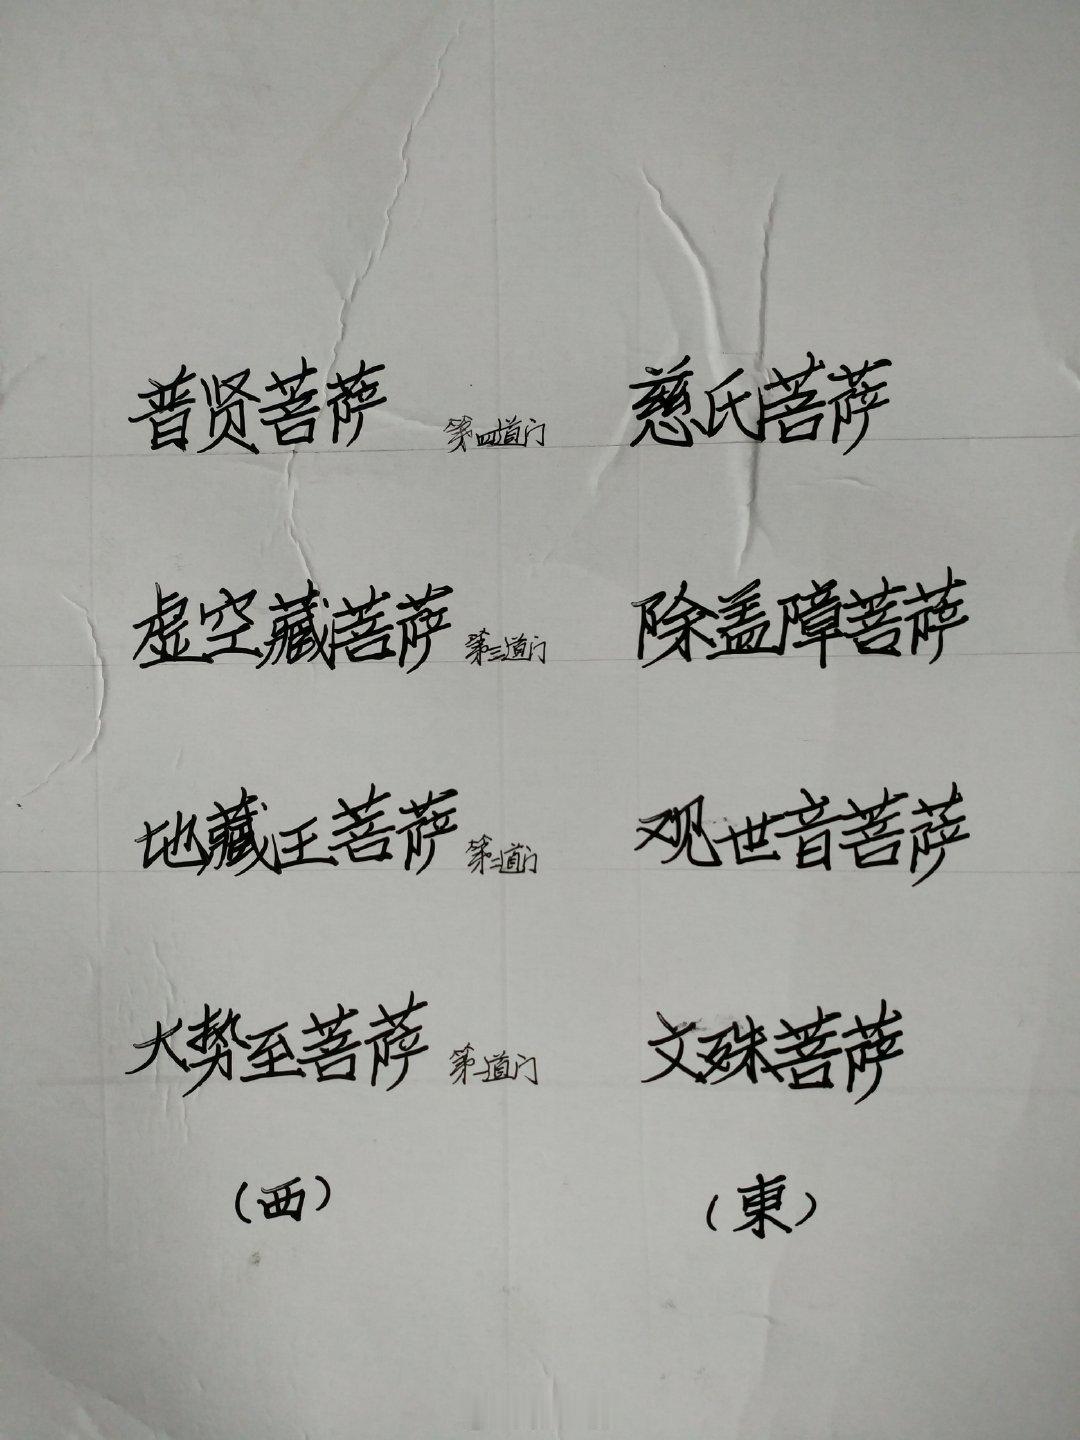 普贤菩萨 第四道门 慈氏菩萨
虚空藏菩萨 第三道门 除盖障菩萨
地藏王菩萨 第二道门 观世音菩萨
大势至菩萨 第一道门 文殊菩萨
（西） （東）